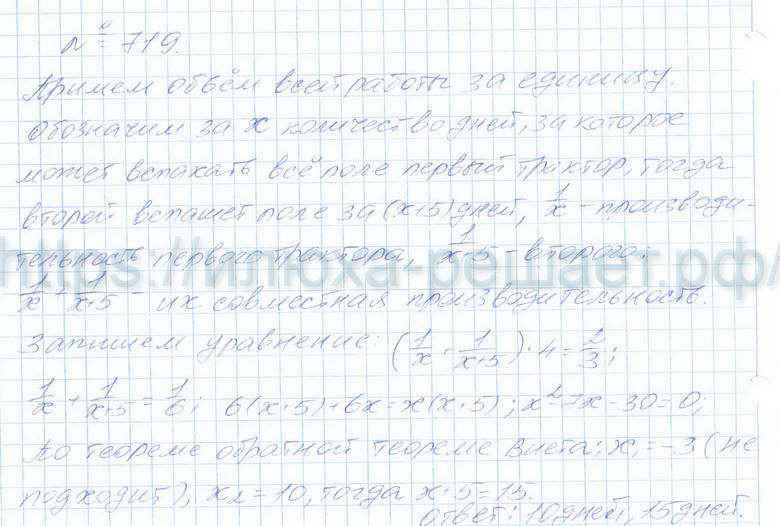 № 719.
Примем объём всей работы за единицу.
Обозначим за x количество дней, за которое
может вспахать всё поле первый трактор, тогда
второй вспашет поле за (x+5) дней, 1/x - производи-
тельность первого трактора, 1/x+5 - второго;
https://илюха-решает.рф/
1/x + 1/x+5 - их совместная производительность.
Запишем уравнение: (1/x + 1/x+5) · 4 = 2/3;
1/x + 1/x+5 = 1/6; 6(x+5)+6x=x(x+5); x²-7x-30=0;
По теореме обратной теореме Виета: x₁=-3 (не
подходит), x₂=10, тогда x+5=15.
Ответ: 10 дней, 15 дней.